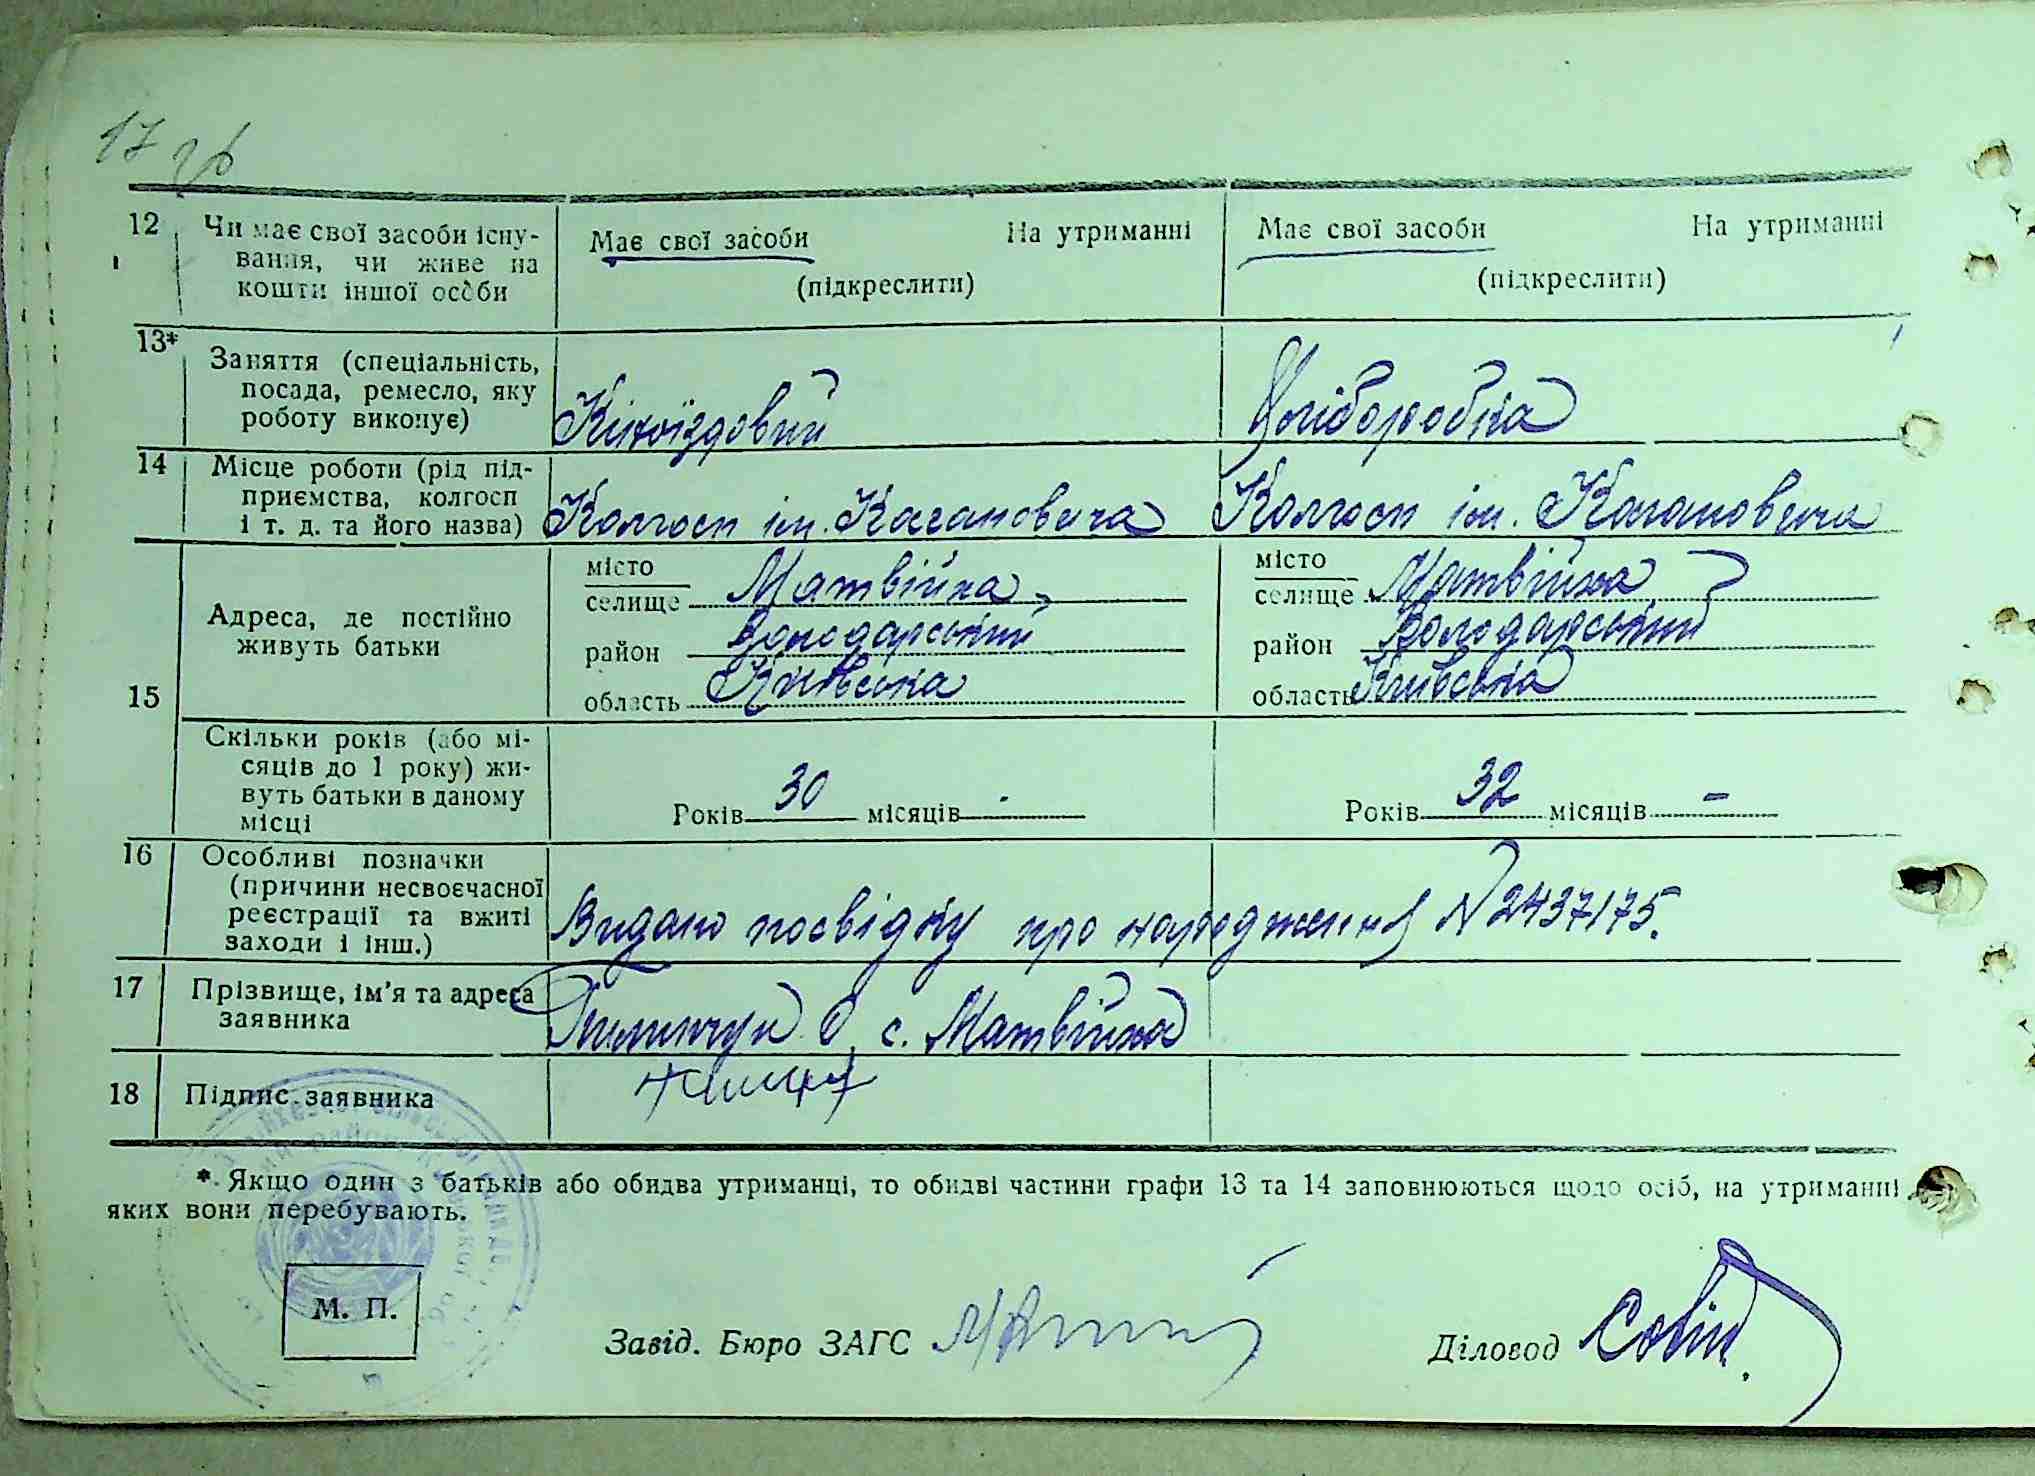 17
12 Чи має свої засоби існу- Має свої засоби На утриманні Має свої засоби На утриманні
вання, чи живе на
кошти іншої особи (підкреслити) (підкреслити)
13* Заняття (спеціальність,
посада, ремесло, яку
роботу виконує) Їздовий
14 Місце роботи (рід під-
приємства, колгосп
і т. д. та його назва) Колгосп ім. Кагановича Колгосп ім. Кагановича
15 Адреса, де постійно
живуть батьки
місто місто
селище Матвійка, селище Матвійка
район Володарський район Володарський
область Київська область Київська
Скільки років (або мі-
сяців до 1 року) жи-
вуть батьки в даному
місці Років 30 місяців - Років 32 місяців -
16 Особливі позначки
(причини несвоєчасної
реєстрації та вжиті
заходи і інш.) Видано посвідку про народження N 2437175.
17 Прізвище, ім'я та адреса
заявника с. Матвійка
18 Підпис заявника
* Якщо один з батьків або обидва утриманці, то обидві частини графи 13 та 14 заповнюються щодо осіб, на утриманні
яких вони перебувають.
М. П.
Завід. Бюро ЗАГС Діловод